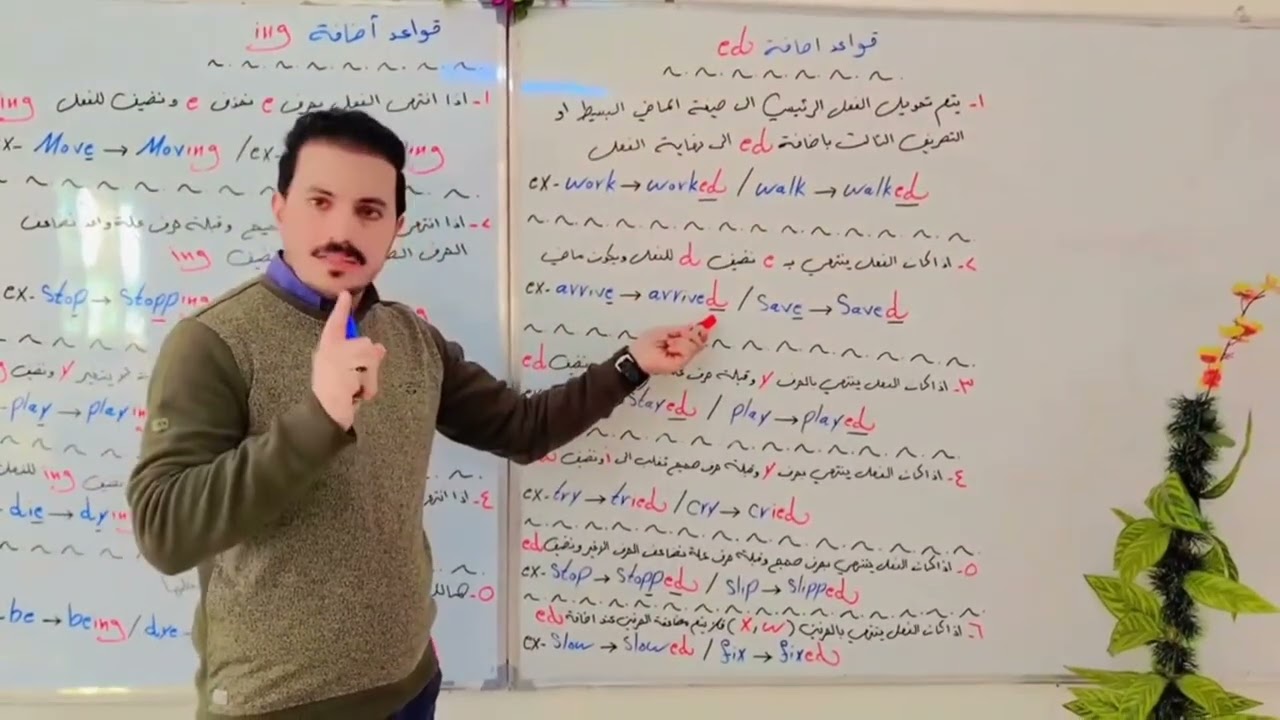 قواعد اضافة ed
١- يتم تحويل الفعل الرئيسي الى صيغة الماضي البسيط او
التصريف الثالث باضافة ed الى نهاية الفعل
ex- work → worked / walk → walked
٢- اذا كان الفعل ينتهي بـ e نضيف d للفعل ويكون ماضي
ex- arrive → arrived / save → saved
٣- اذا كان الفعل ينتهي بالحرف y وقبله حرف نضيف ed
stayed / play → played
٤- اذا كان الفعل ينتهي بحرف y وقبله حرف صحيح تقلب الى i ونضيف
ex- try → tried / cry → cried
٥- اذا كان الفعل ينتهي بحرف صحيح وقبله حرف علة نضاعف الحرف الاخير ونضيف ed
ex- stop → stopped / slip → slipped
٦- اذا كان الفعل ينتهي بالحرفين (x, w) فلا يتم مضاعفة الحرفين عند اضافة ed
ex- slow → slowed / fix → fixed
قواعد أضافة ing
١- اذا انتهى الفعل بحرف e نحذف e ونضيف للفعل ing
ex- Move → Moving / ex- ing
٢- اذا انتهى صحيح وقبله حرف علة واحد نضاعف
الحرف نضيف ing
ex- stop → stopping
y ونضيف
play → playing
٤- اذا انتهى نضيف ing للفعل
die → dying
٥- هنالك
be → being / dye